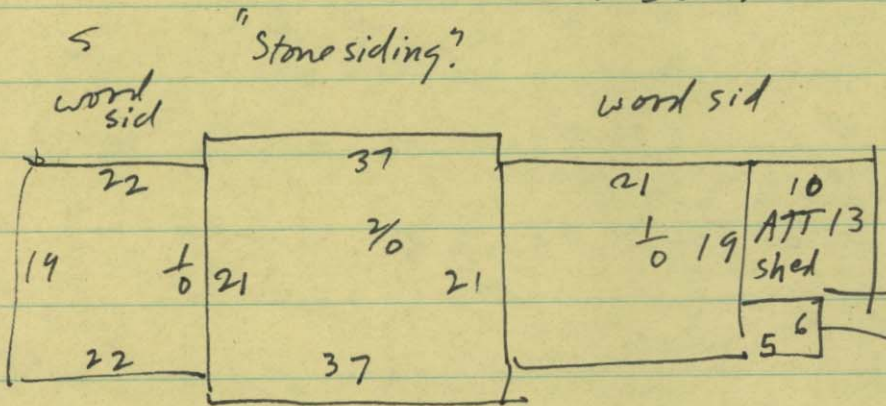 "Stone siding?
wood sid
wood sid
22
37
21
10
19
1/0
21
2/0
21
1/0
19
ATT 13
shed
22
37
5
6